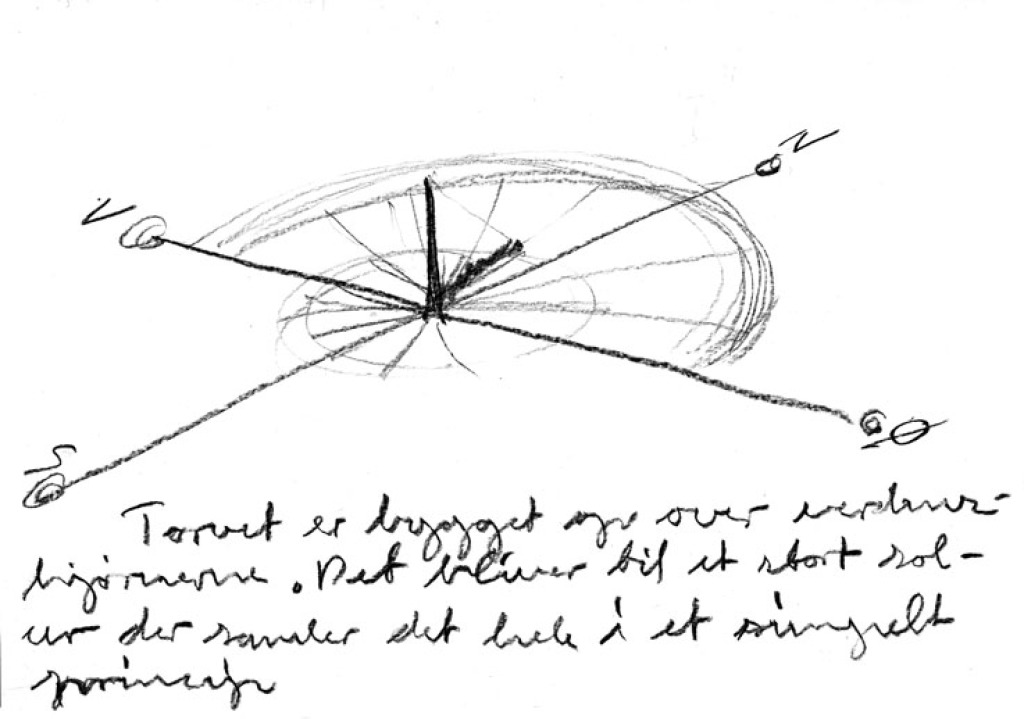 N
V
S
Ø
Torvet er bygget op over verdens-
hjørnerne. Det bliver til et stort sol-
ur der samler det hele i et simpelt
princip